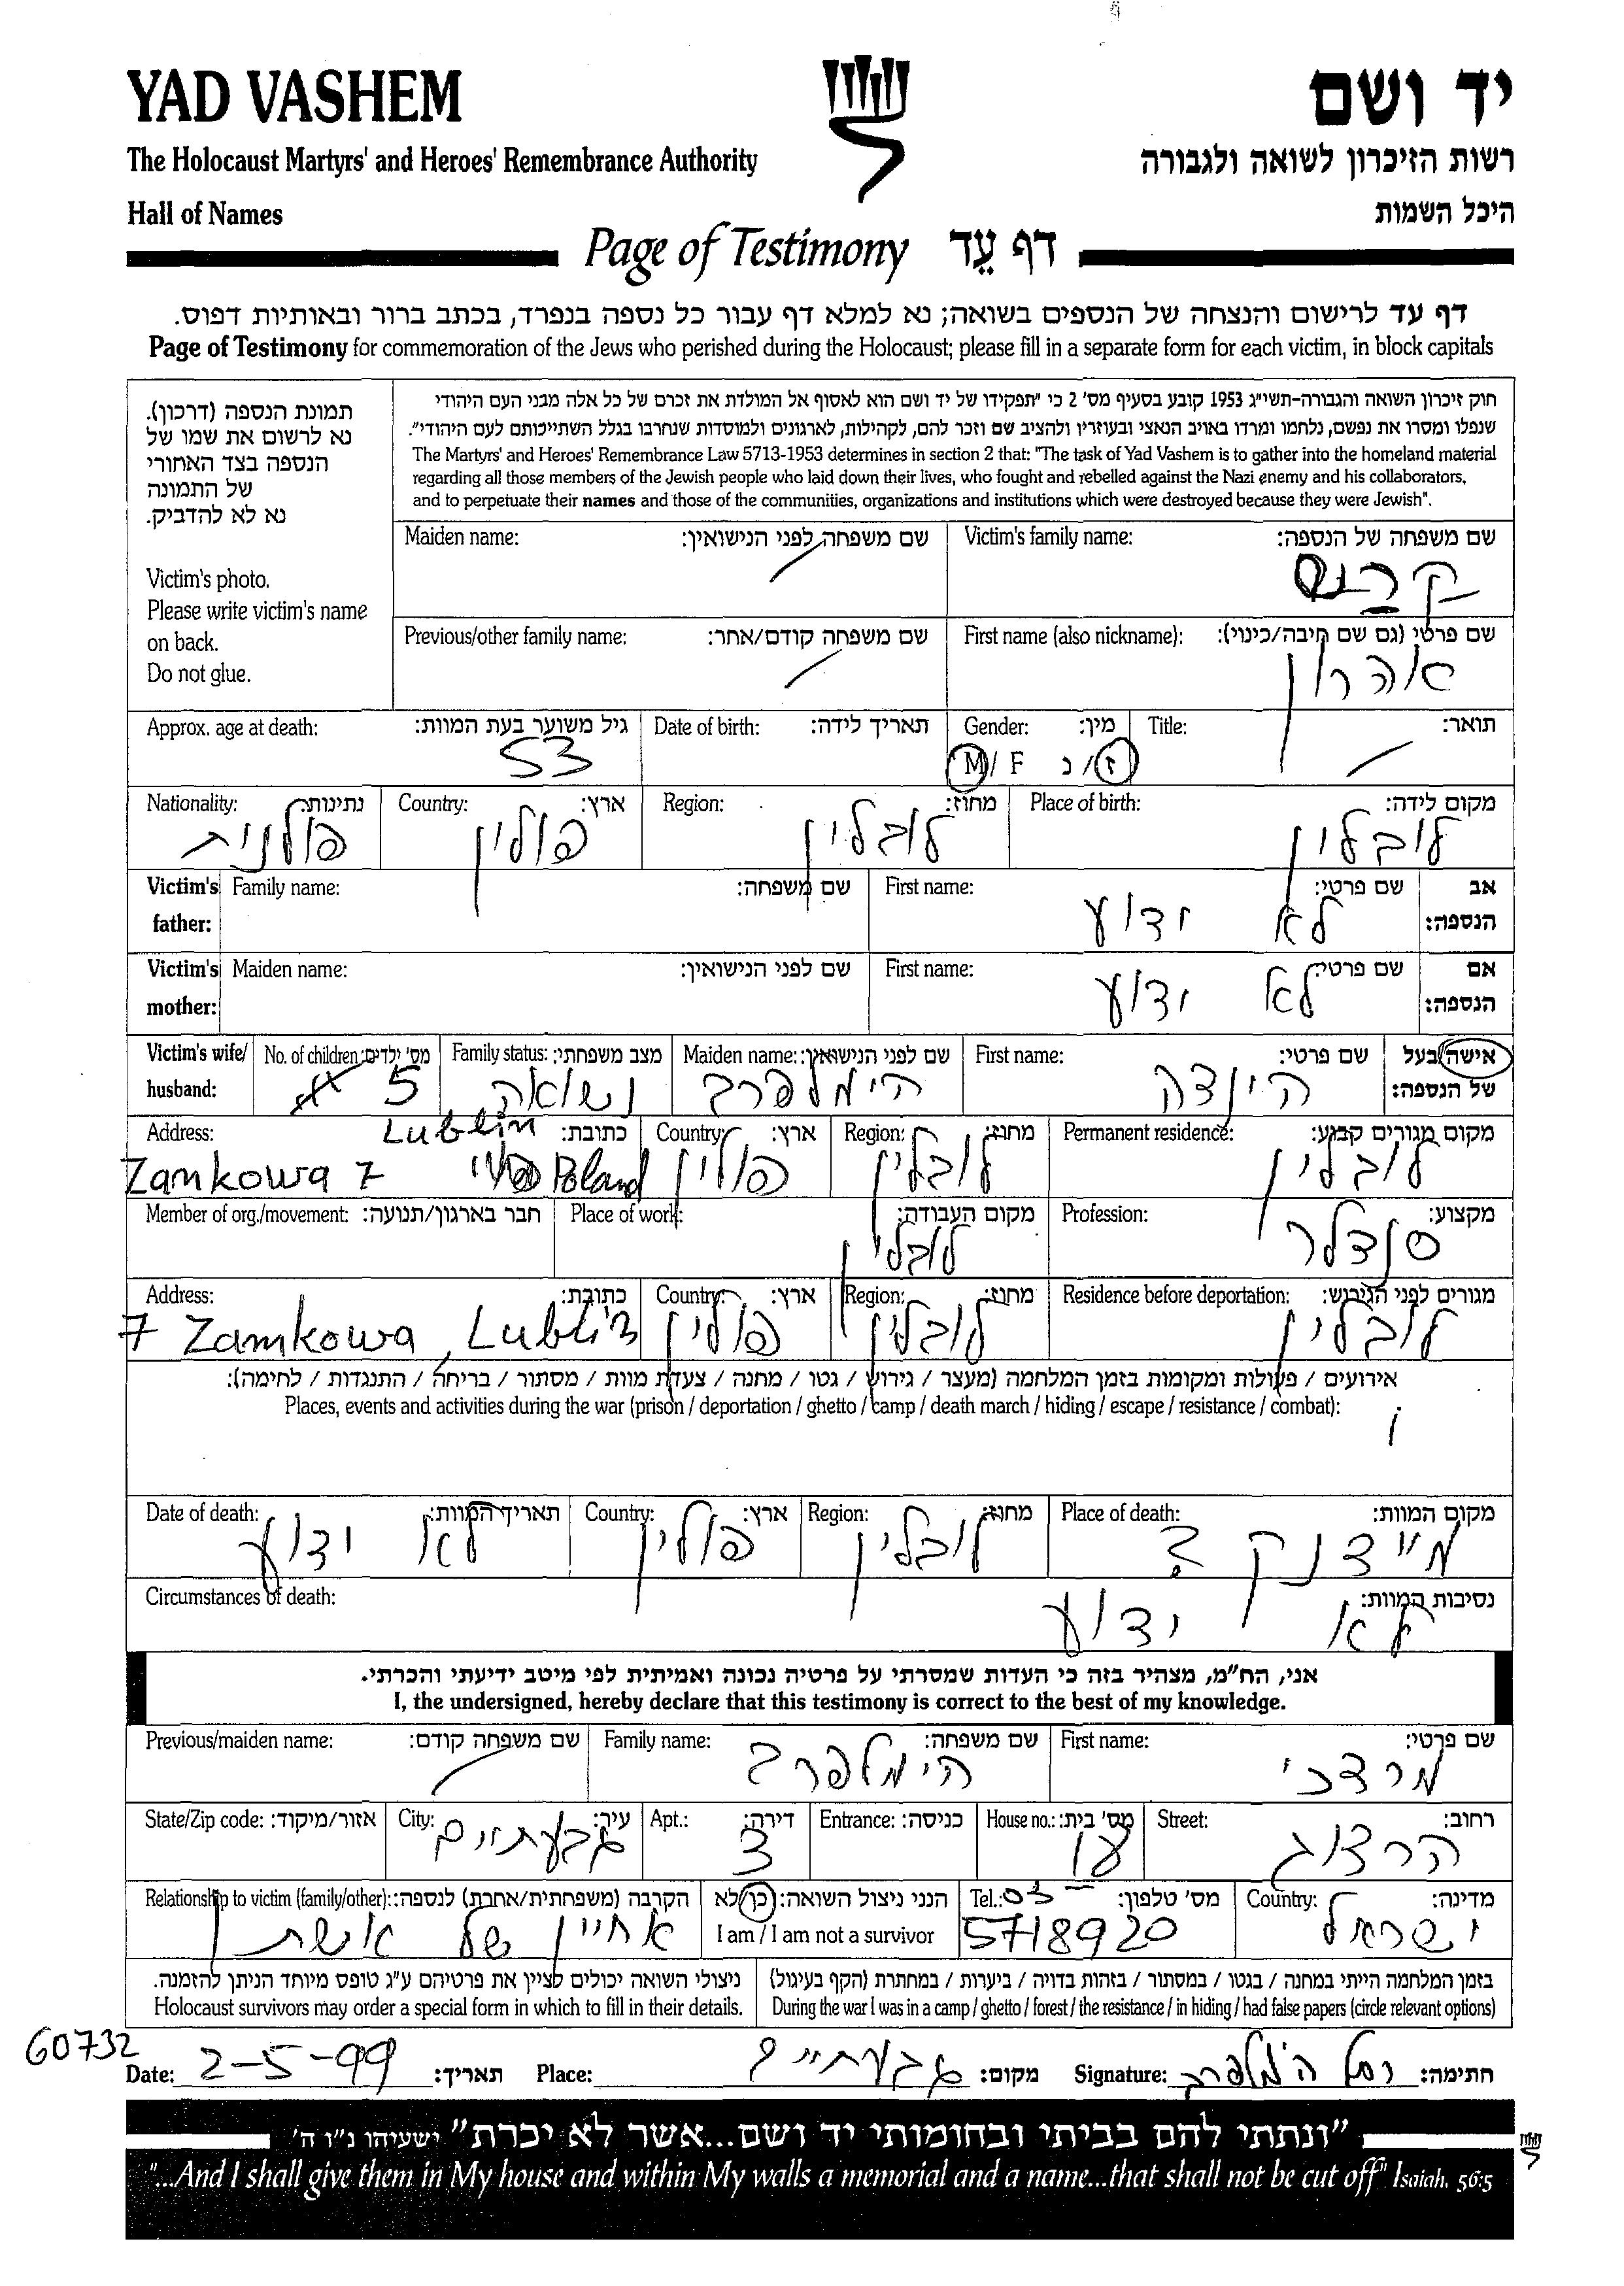 YAD VASHEM
יד ושם
The Holocaust Martyrs' and Heroes' Remembrance Authority
רשות הזיכרון לשואה ולגבורה
Hall of Names
היכל השמות
Page of Testimony דף עֵד
דף עד לרישום והנצחה של הנספים בשואה; נא למלא דף עבור כל נספה בנפרד, בכתב ברור ובאותיות דפוס.
Page of Testimony for commemoration of the Jews who perished during the Holocaust; please fill in a separate form for each victim, in block capitals
תמונת הנספה (דרכון).
נא לרשום את שמו של
הנספה בצד האחורי
של התמונה
נא לא להדביק.
Victim's photo.
Please write victim's name
on back.
Do not glue.
חוק זיכרון השואה והגבורה-תשי"ג 1953 קובע בסעיף מס' 2 כי "תפקידו של יד ושם הוא לאסוף אל המולדת את זכרם של כל אלה מבני העם היהודי
שנפלו ומסרו את נפשם, נלחמו ומרדו באויב הנאצי ובעוזריו ולהציב שם וזכר להם, לקהילות, לארגונים ולמוסדות שנחרבו בגלל השתייכותם לעם היהודי".
The Martyrs' and Heroes' Remembrance Law 5713-1953 determines in section 2 that: "The task of Yad Vashem is to gather into the homeland material
regarding all those members of the Jewish people who laid down their lives, who fought and rebelled against the Nazi enemy and his collaborators,
and to perpetuate their names and those of the communities, organizations and institutions which were destroyed because they were Jewish".
Maiden name: שם משפחה לפני הנישואין: Victim's family name: שם משפחה של הנספה:
Previous/other family name: שם משפחה קודם/אחר: First name (also nickname): שם פרטי (גם שם חיבה/כינוי):
אהרון
Approx. age at death: גיל משוער בעת המוות: Date of birth: תאריך לידה: Gender: מין: Title: תואר:
53 M/F ז/נ
Nationality: נתינות: Country: ארץ: Region: מחוז: Place of birth: מקום לידה:
פולנית פולין לובלין לובלין
Victim's father: Family name: שם משפחה: First name: שם פרטי: אב הנספה:
לא ידוע
Victim's mother: Maiden name: שם לפני הנישואין: First name: שם פרטי: אם הנספה:
לא ידוע
Victim's wife/ husband: No. of children: מס' ילדים: Family status: מצב משפחתי: Maiden name: שם לפני הנישואין: First name: שם פרטי: אישה/בעל של הנספה:
5 נשואה הימלפרב הינדה
Address: כתובת: Country: ארץ: Region: מחוז: Permanent residence: מקום מגורים קבוע:
Lublin
Zamkowa 7 Poland פולין לובלין לובלין
Member of org./movement: חבר בארגון/תנועה: Place of work: מקום העבודה: Profession: מקצוע:
לובלין סנדלר
Address: כתובת: Country: ארץ: Region: מחוז: Residence before deportation: מגורים לפני הגירוש:
7 Zamkowa, Lublin פולין לובלין לובלין
אירועים / פעולות ומקומות בזמן המלחמה (מעצר / גירוש / גטו / מחנה / צעדת מוות / מסתור / בריחה / התנגדות / לחימה):
Places, events and activities during the war (prison / deportation / ghetto / camp / death march / hiding / escape / resistance / combat):
Date of death: תאריך המוות: Country: ארץ: Region: מחוז: Place of death: מקום המוות:
לא ידוע פולין לובלין מיידנק ?
Circumstances of death: נסיבות המוות:
לא ידוע
אני, הח"מ, מצהיר בזה כי העדות שמסרתי על פרטיה נכונה ואמיתית לפי מיטב ידיעתי והכרתי.
I, the undersigned, hereby declare that this testimony is correct to the best of my knowledge.
Previous/maiden name: שם משפחה קודם: Family name: שם משפחה: First name: שם פרטי:
הימלפרב מרדכי
State/Zip code: אזור/מיקוד: City: עיר: Apt.: דירה: Entrance: כניסה: House no.: מס' בית: Street: רחוב:
גבעתיים 3 הרצוג
Relationship to victim (family/other): הקרבה (משפחתית/אחרת) לנספה: הנני ניצול השואה: כן/לא Tel.: 03- מס' טלפון: Country: מדינה:
אחיין של אשתו I am / I am not a survivor 5718920 ישראל
ניצולי השואה יכולים לציין את פרטיהם ע"ג טופס מיוחד הניתן להזמנה.
Holocaust survivors may order a special form in which to fill in their details.
בזמן המלחמה הייתי במחנה / בגטו / במסתור / בזהות בדויה / ביערות / במחתרת (הקף בעיגול)
During the war I was in a camp / ghetto / forest / the resistance / in hiding / had false papers (circle relevant options)
60732
Date: 2-5-99 תאריך: Place: גבעתיים מקום: Signature: הימלפרב חתימה:
"ונתתי להם בביתי ובחומותי יד ושם...אשר לא יכרת" ישעיהו נ"ו ה'
"...And I shall give them in My house and within My walls a memorial and a name...that shall not be cut off" Isaiah. 56:5